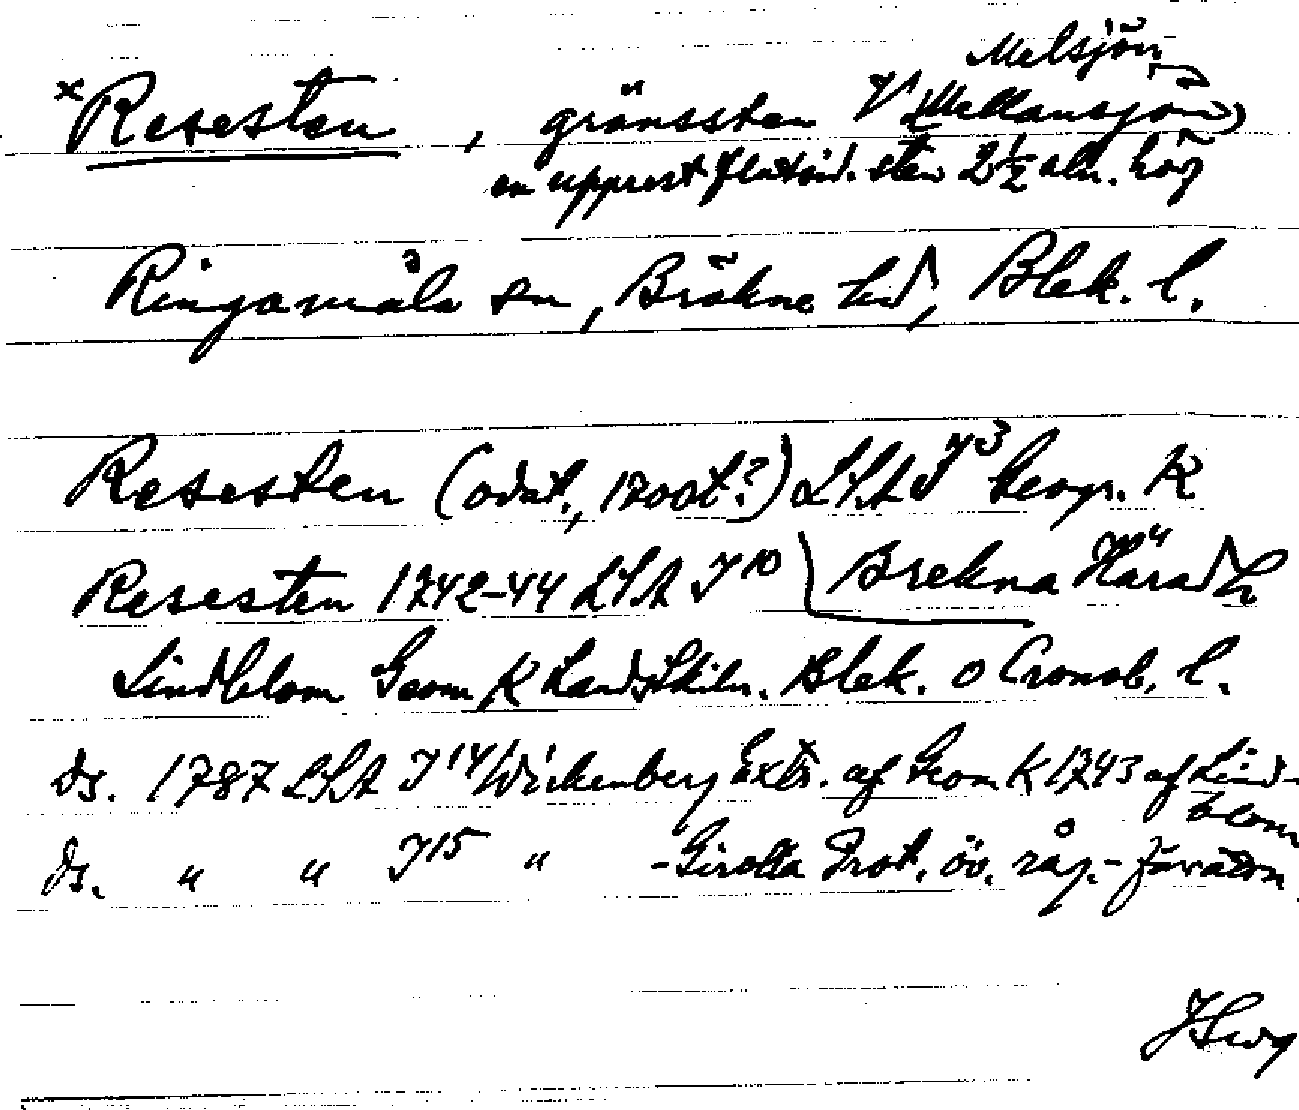 Melsjön
×Resesten, gränssten V (Mellansjön)
en upprest flatsid. sten 2½ aln. hög
Ringamåla sn, Bräkne hd, Blek. l.
Resesten (odat., 1700t?) LSA J73 Geogr. K
Resesten 1742-44 LSA J10 Brekna Härad
Lindblom Geom K Landsskiln. Blek. o Cronob. l.
ds. 1787 LSA J14 Wickenberg Extr. af Geom K 1743 af Lind-
blom
ds. " " J15 " - Girolla Prot. öv. råg.-